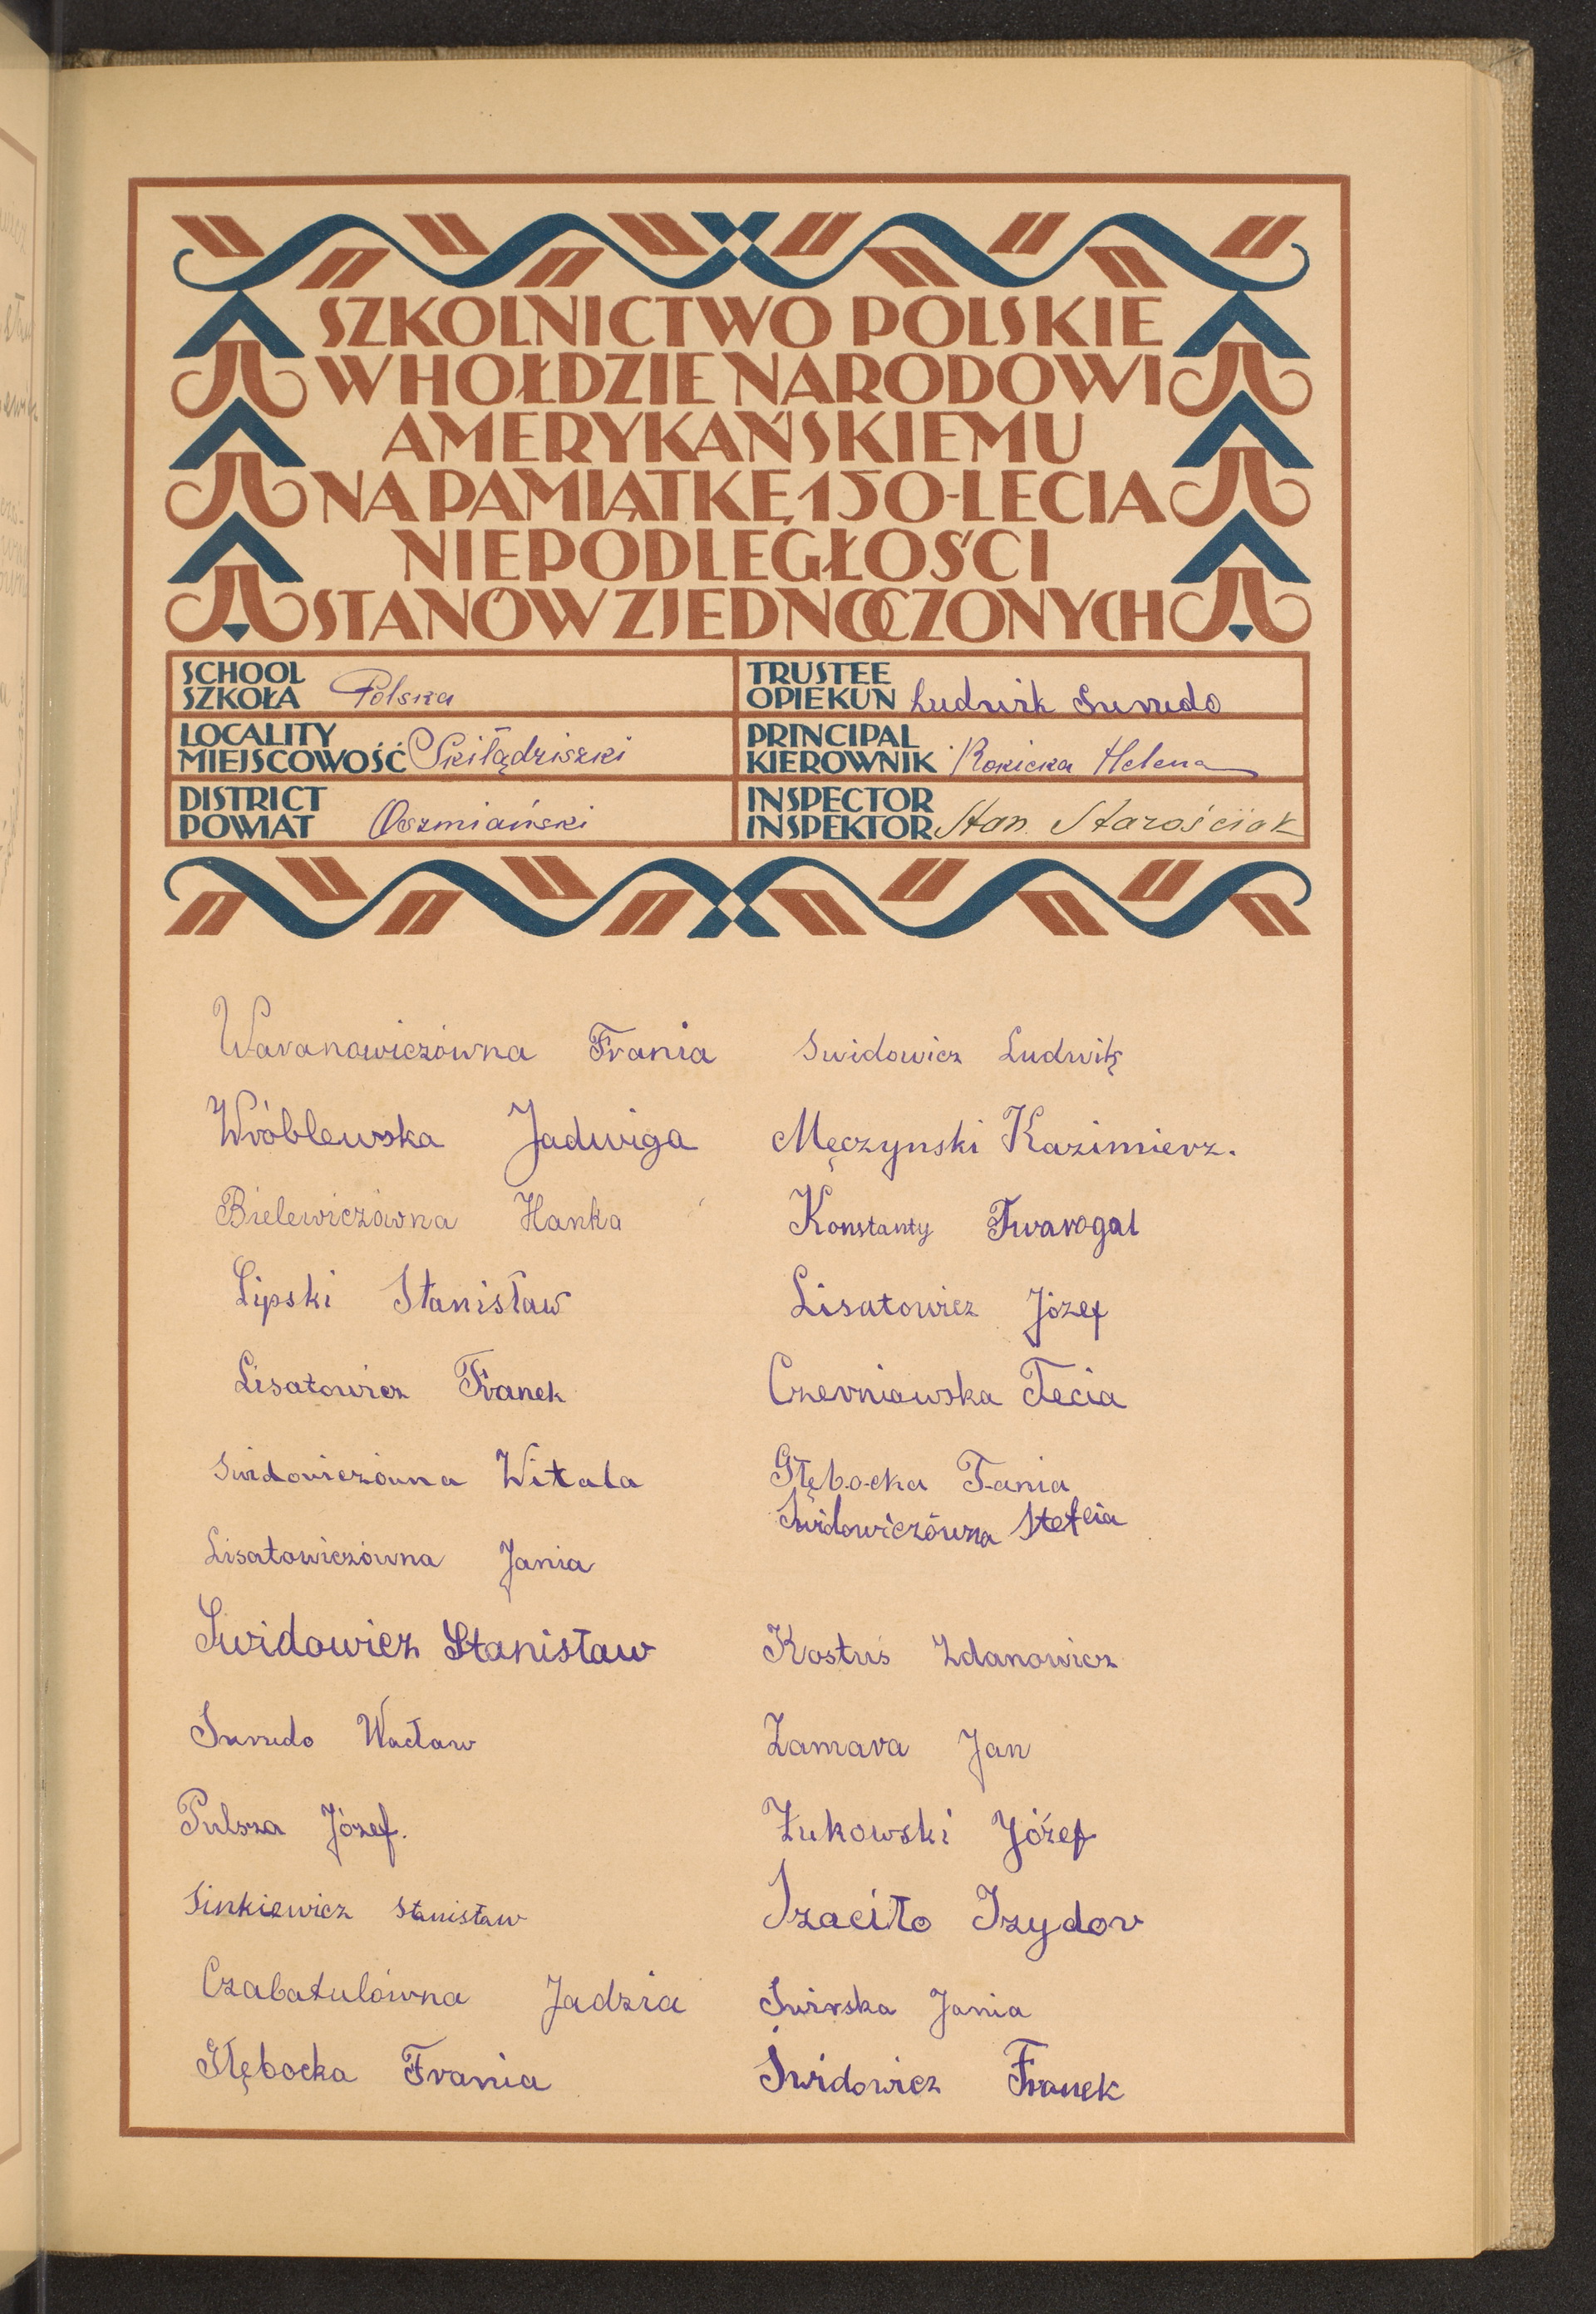 SZKOLNICTWO POLSKIE
W HOŁDZIE NARODOWI
AMERYKAŃSKIEMU
NA PAMIĄTKĘ 150-LECIA
NIEPODLEGŁOŚCI
STANÓW ZJEDNOCZONYCH
SCHOOL
SZKOŁA Polska
TRUSTEE
OPIEKUN Ludwik
LOCALITY
MIEJSCOWOŚĆ Skiłądziszki
PRINCIPAL
KIEROWNIK Rokicka Helena
DISTRICT
POWIAT Oszmiański
INSPECTOR
INSPEKTOR Stan. Starościak
Waranowiczówna Frania
Wróblewska Jadwiga
Bielewiczówna Hanka
Lipski Stanisław
Lisatowicz Franek
Swidowiczówna Witala
Lisatowiczówna Jania
Swidowicz Stanisław
Wacław
Pulsza Józef.
Sinkiewicz Stanisław
Czabatulówna Jadzia
Głębocka Frania
Swidowicz Ludwik
Męczynski Kazimierz.
Konstanty Twarogal
Lisatowicz Józef
Czerniawska Tecia
Głębocka Tania
Swidowiczówna Stefcia
Kostuś Zdanowicz
Zamara Jan
Żukowski Józef
Szaciło Izydor
Swirska Jania
Swidowicz Franek